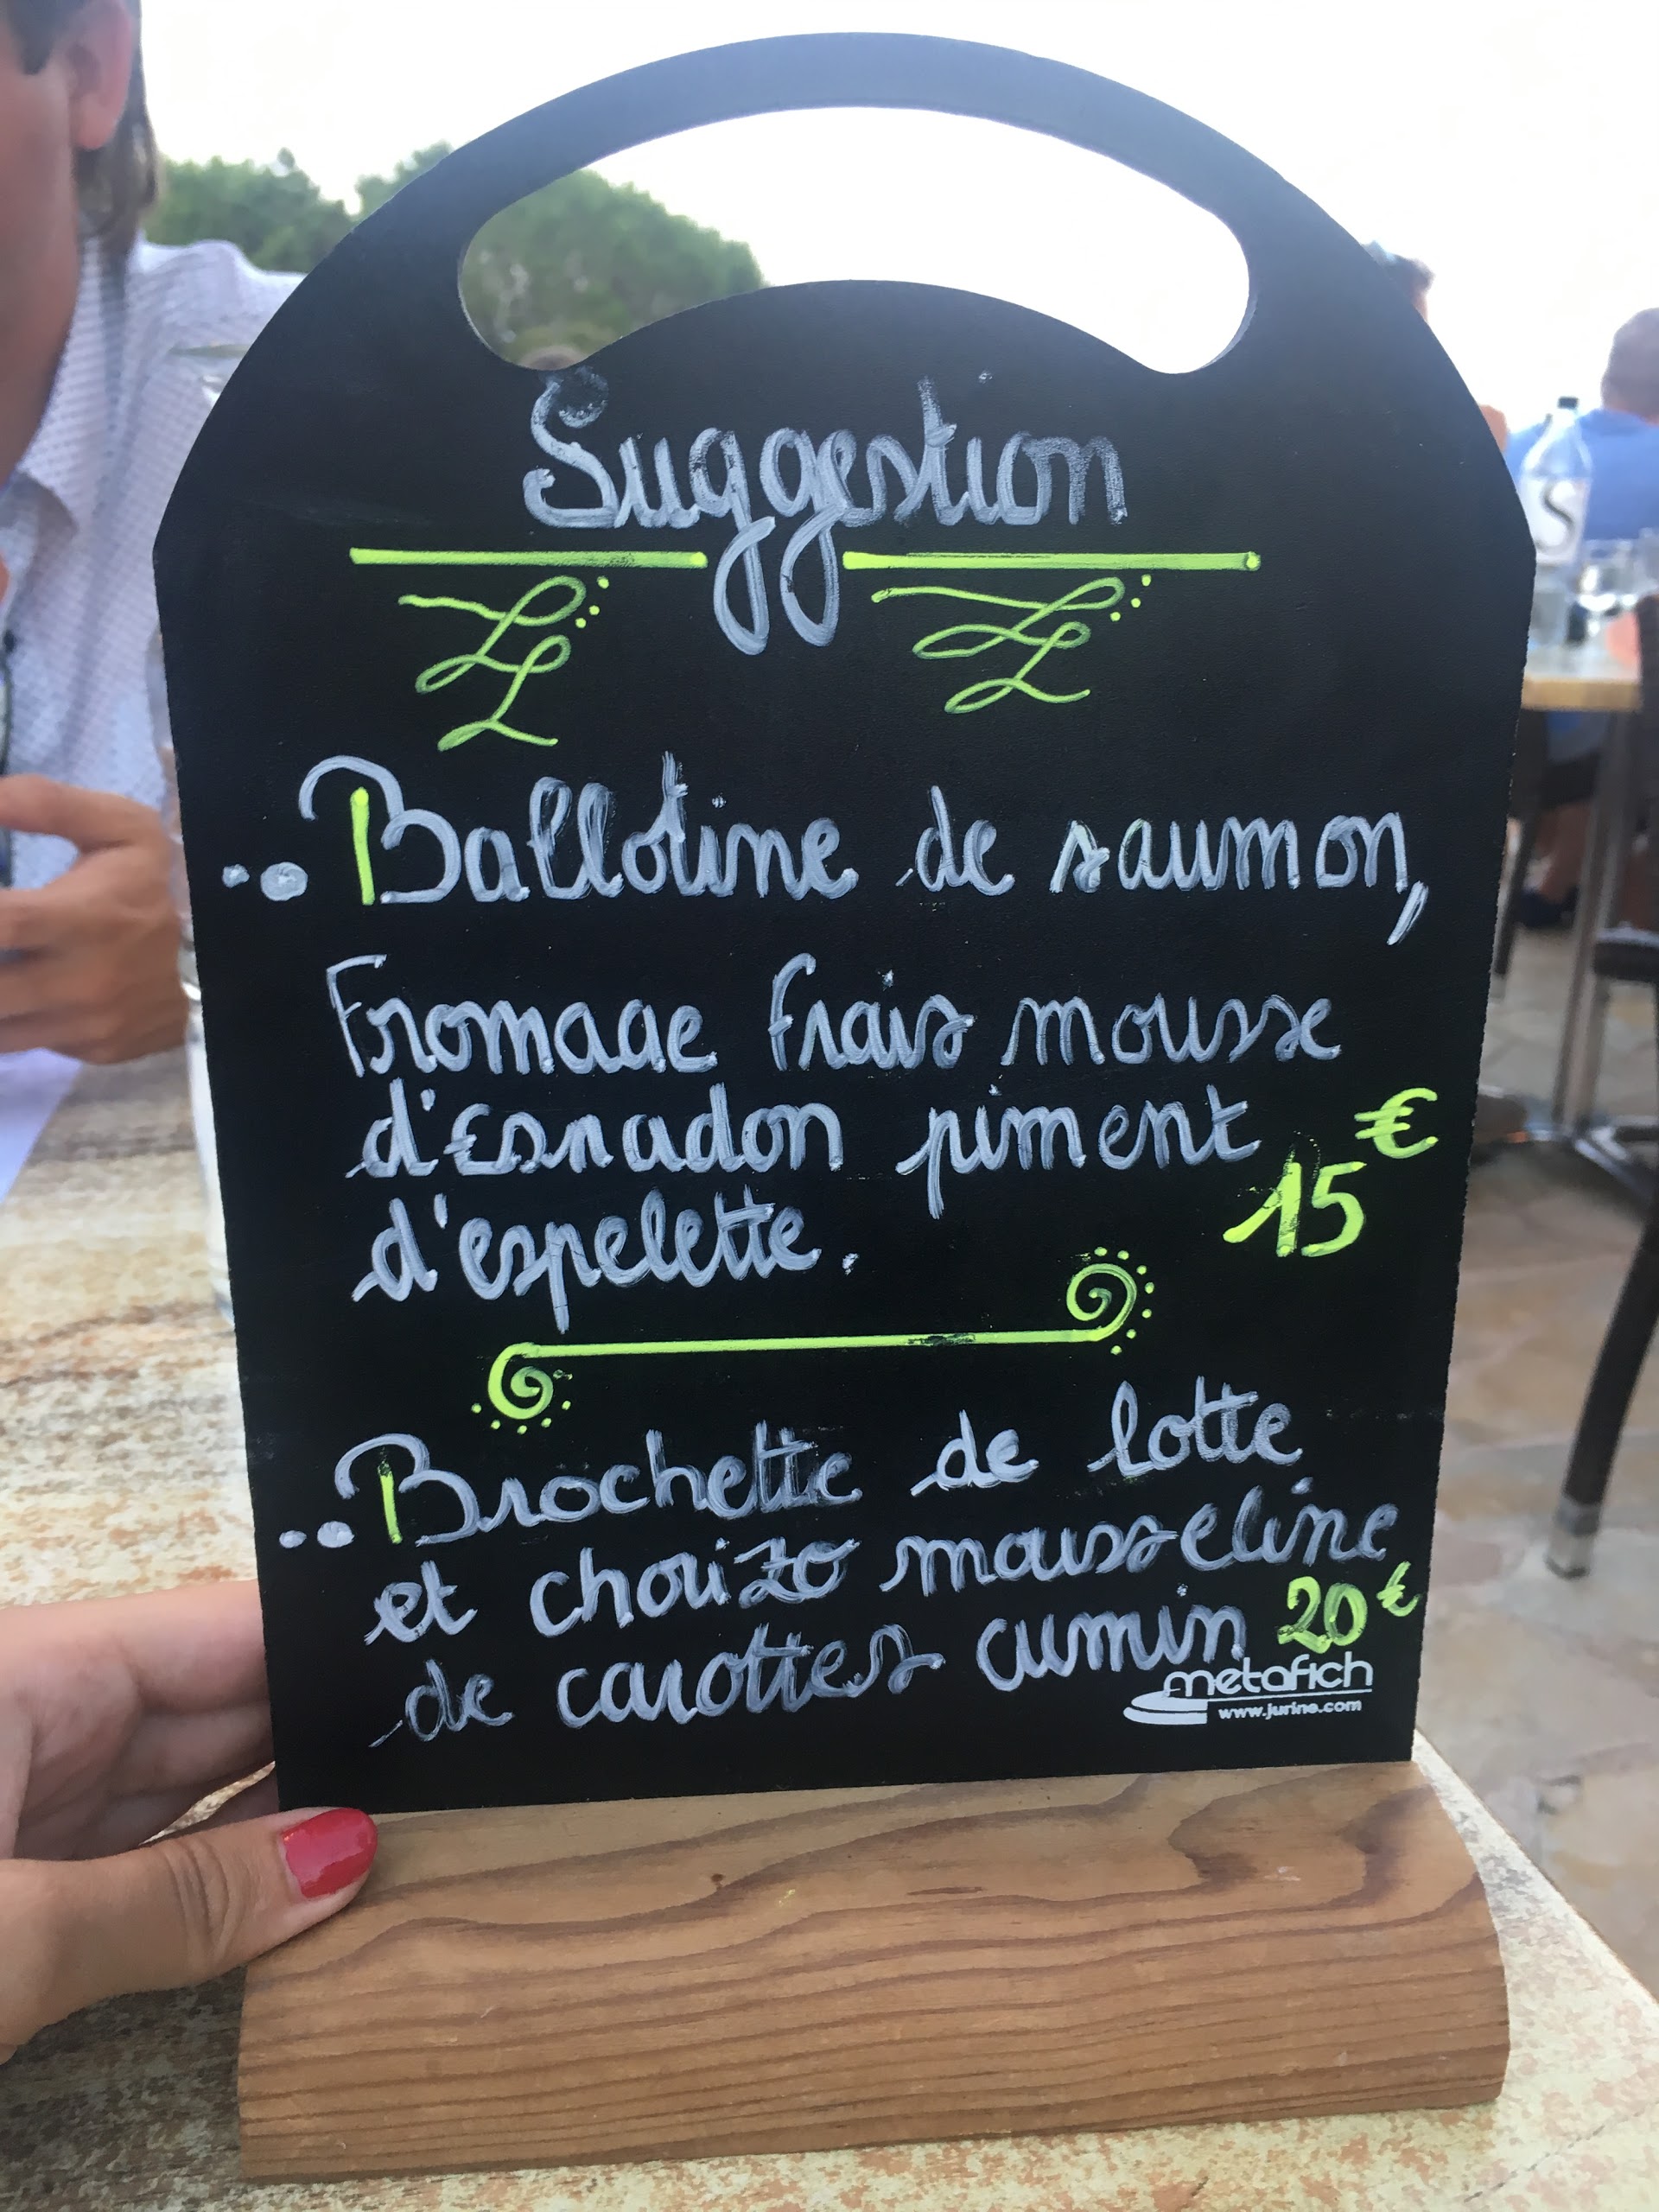 Suggestion
Ballotine de saumon,
Fromage frais mousse
d'Esnadon piment 15€
d'espelette.
Brochette de lotte
et chorizo mousseline
de carottes cumin 20€
metafich
www.jurine.com
S